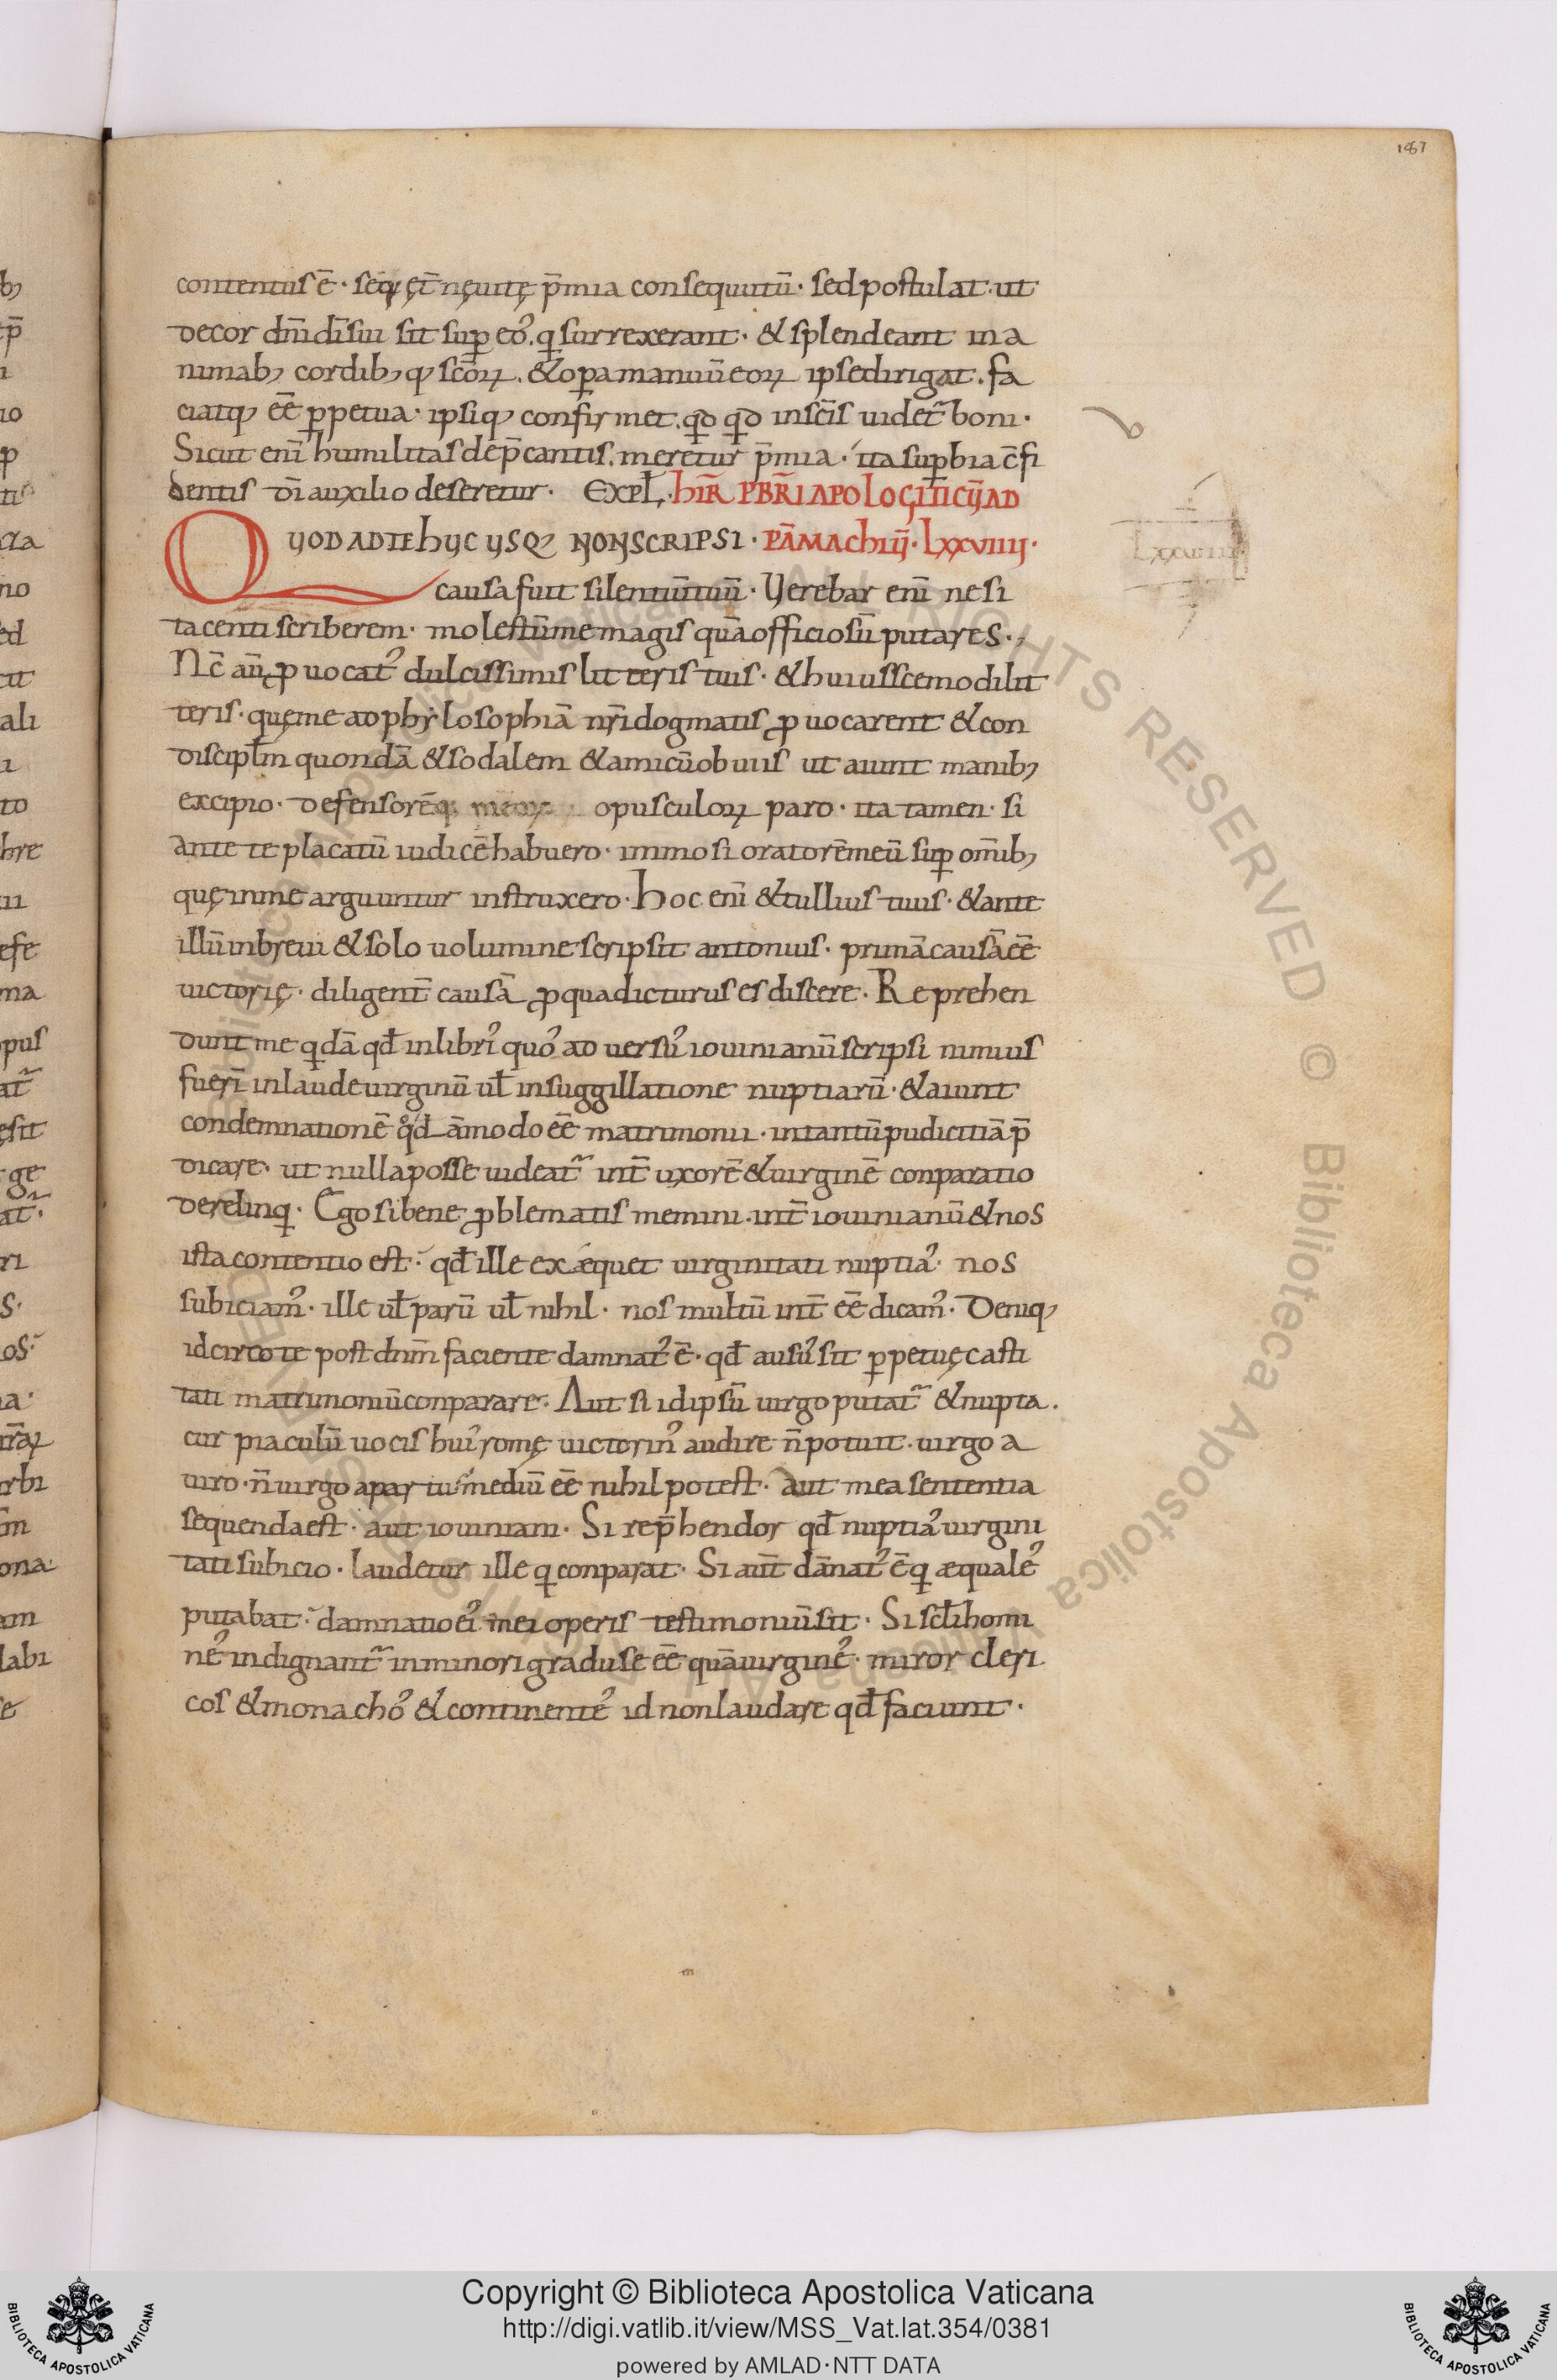 187
contentus ē · seq; et̄ nęuitę p̄mia consequutū · sed postulat · ut
decor dn̄i dī sui sit sup eoˀ . q surrexerant · & splendeant in a
nimab; cordib; q; scōꝝ . & opa manuū eoꝝ ipse dirigat . fa
ciatq; eē ppetua · ipsiq; confirmet . qd qd in scīs uidet᷑ boni ·
Sicut enī humilitas dep̄cantis . meretur p̄mia · ita supbia c̄fi
dentis dī auxilio deseretur · EXPƚ · hIR̄ PBR̄I APOLOGITICŪ AD
QUOD AD TE hUC USQ; NON SCRIPSI · PĀMAChIŪ · LXXVIIII ·
causa fuit silentiū tuū · Verebar enī ne si
tacenti scriberem · molestū me magis quā officiosū putares ·
Nc̄ aū ꝓuocatˀ dulcissimis litteris tuis · & huiuscemodi lit
teris · quę me ad phylosophiā nr̄i dogmatis ꝓuocarent & con
discipƚm quondā & sodalem & amicū obuiis ut aiunt manib;
excipio · defensorēq; meoꝝ opusculoꝝ paro · ita tamen · si
ante te placatū iudicē habuero · immo si oratorē meū sup om̄ib;
quę in me arguuntur instruxero · hoc enī & tullius tuus · & ante
illū in breui & solo uolumine scripsit antonius · primā causā eē
uictorię · diligent̄ causā ꝓ qua dicturus es discere · Reprehen
dunt me qdā qđ in librˀ quoˀ aduersuˀ iouinianū scripsi nimius
fuerī in laude uirginū uƚ in suggillatione nuptiarū · & aiunt
condemnationē qđ āmodo eē matrimonii · in tantū pudicitiā p̄
dicare · ut nulla posse uideat᷑ int̄ uxorē & uirginē conparatio
derelinq · Ego si bene ꝓblematis memini · int̄ iouinianū & nos
ista contentio est · qđ ille exæquet uirginitati nuptiaˀ · nos
subiciamˀ · ille uƚ parū uƚ nihil · nos multū int̄ eē dicamˀ · Deniq;
idcirco te post dnm̄ faciente damnatˀ ē · qđ ausuˀ sit ppetuę casti
tati matrimoniū conparare · Aut si idipsū uirgo putat᷑ & nupta .
cur piaculū uocis huiˀ romę uictorinˀ audire n̄ potuit · uirgo a
uiro · n̄ uirgo a partu · mediū eē nihil potest · aut mea sententia
sequenda est · aut iouiniani · Si rep̄hendor qđ nuptiaˀ uirgini
tati subicio · laudetur ille q conparat · Si aut̄ dānatˀ ē q æqualeˀ
putabat · damnatio eiˀ mei operis testimoniū sit · Si scƚi homi
neˀ indignant᷑ in minori gradu se eē quā uirgineˀ · miror cleri
cos & monachoˀ & continenteˀ id non laudare qđ faciunt ·
Copyright © Biblioteca Apostolica Vaticana
http://digi.vatlib.it/view/MSS_Vat.lat.354/0381
powered by AMLAD·NTT DATA
BIBLIOTECA APOSTOLICA VATICANA
BIBLIOTECA APOSTOLICA VATICANA